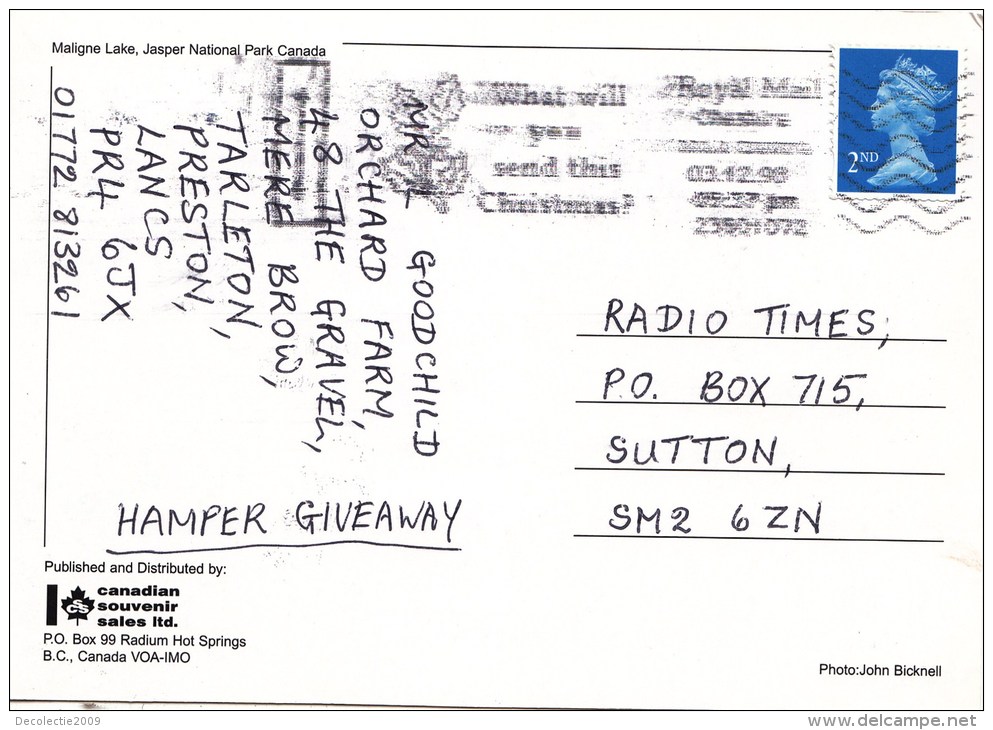 Maligne Lake, Jasper National Park Canada
What will
you
send this
Christmas?
Royal Mail
2ND
MR L GOODCHILD
ORCHARD FARM,
48 THE GRAVEL,
MERE BROW,
TARLETON,
PRESTON,
LANCS
PR4 6JX
01772 813261
HAMPER GIVEAWAY
RADIO TIMES,
P.O. BOX 715,
SUTTON,
SM2 6ZN
Published and Distributed by:
CSS
canadian
souvenir
sales ltd.
P.O. Box 99 Radium Hot Springs
B.C., Canada VOA-IMO
Photo:John Bicknell
Decolectie2009
www.delcampe.net